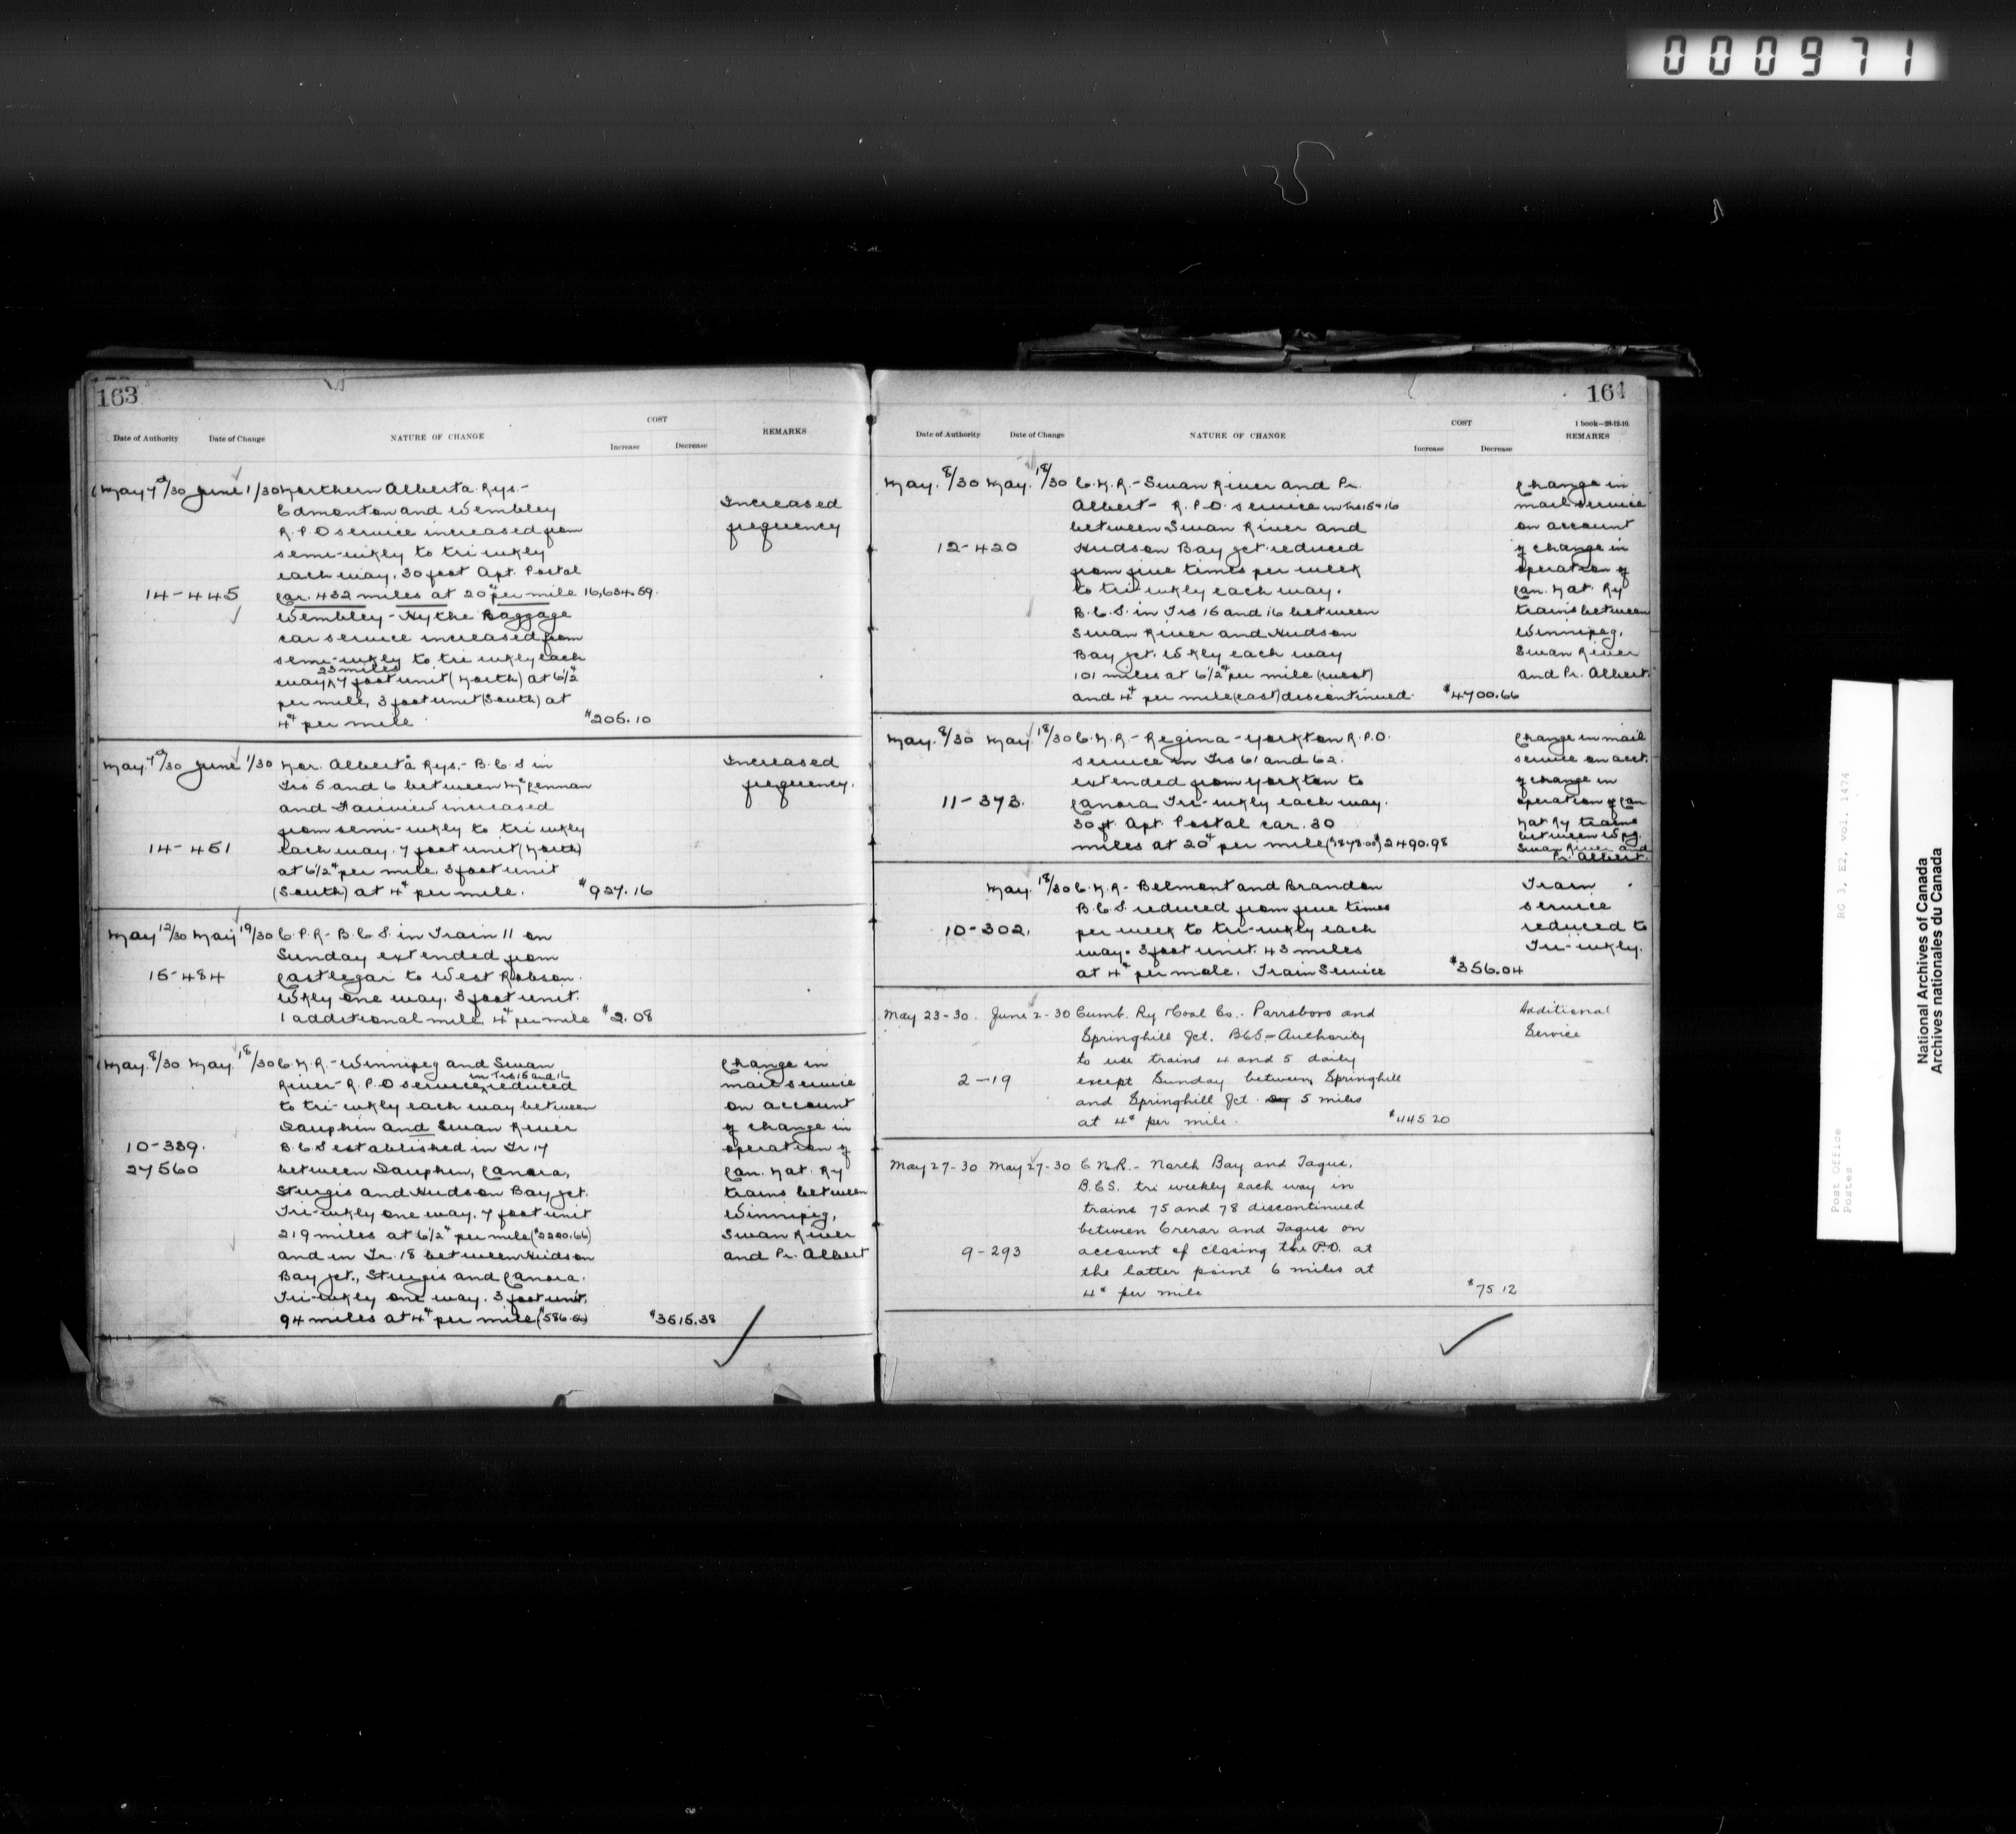 000971
163
COST
Date of Authority Date of Change NATURE OF CHANGE Increase Decrease REMARKS
May 7/30 June 1/30 Northern Alberta Rys.-
Edmonton and Wembley Increased
R.P.O service increased from frequency
semi-wkly to tri wkly
each way. 30 foot Apt. Postal
14-445 Car. 432 miles at 20¢ per mile 16,634.59.
Wembley-Hythe Baggage
car service increased from
semi-wkly to tri wkly each
23 miles
way, 7 foot unit (North) at 6½¢
per mile, 3 foot unit (South) at
4¢ per mile $205.10
May 7/30 June 1/30 Nor. Alberta Rys.- B.C.S in Increased
Trs 5 and 6 between McLennan frequency.
and Fairview increased
from semi-wkly to tri wkly
14-451 each way. 7 foot unit (North)
at 6½¢ per mile, 3 foot unit
(South) at 4¢ per mile. $927.16
May 12/30 May 19/30 C.P.R- B.C.S. in Train 11 on
Sunday extended from
15-484 Castlegar to West Robson.
Wkly one way. 3 foot unit.
1 additional mile 4¢ per mile $2.08
May. 8/30 May. 18/30 C.N.R.- Winnipeg and Swan Change in
in Trs 15 and 16
River- R.P.O service, reduced mail service
to tri-wkly each way between on account
Dauphin and Swan River of change in
10-339. B.C.S established in Tr 17 operation of
27560 between Dauphin, Canora, Can. Nat. Ry
Sturgis and Hudson Bay Jct. trains between
Tri-wkly one way. 7 foot unit Winnipeg,
219 miles at 6½¢ per mile ($2220.66) Swan River
and in Tr. 18 between Hudson and Pr. Albert
Bay Jct., Sturgis and Canora.
Tri-wkly one way. 3 foot unit.
94 miles at 4¢ per mile $3515.38
164
COST 1 book—28-12-10.
Date of Authority Date of Change NATURE OF CHANGE Increase Decrease REMARKS
May. 8/30 May. 18/30 C.N.R.- Swan River and Pr. Change in
Albert- R.P.O. service in Trs 15-16 mail service
between Swan River and on account
12-420 Hudson Bay Jct. reduced of change in
from five times per week operation of
to tri-wkly each way. Can. Nat. Ry
B.C.S. in Trs 15 and 16 between trains between
Swan River and Hudson Winnipeg,
Bay Jct. Wkly each way Swan River
101 miles at 6½¢ per mile (west) and Pr. Albert.
and 4¢ per mile (east) discontinued. $4700.66
May. 8/30 May. 18/30 C.N.R.- Regina-Yorkton R.P.O. Change in mail
service in Trs 61 and 62. service on acct.
extended from Yorkton to of change in
11-373. Canora. Tri-wkly each way. operation of Can
30 ft. Apt. Postal car. 30 Nat Ry trains
miles at 20¢ per mile 2490.98 between Wpg.
Swan River and
Pr. Albert.
May. 18/30 C.N.R- Belmont and Brandon Train
B.C.S. reduced from five times service
10-302. per week to tri-wkly each reduced to
way. 3 foot unit. 43 miles Tri-wkly.
at 4¢ per mile. Train Service $356.04
May 23-30. June 2-30 Cumb. Ry & Coal Co.- Parrsboro and Additional
Springhill Jct. B.C.S.- Authority Service
to use trains 4 and 5 daily
2-19 except Sunday between Springhill
and Springhill Jct. 5 miles
at 4¢ per mile. $445.20
May 27-30 May 27-30 C.N.R.- North Bay and Tagus.
B.C.S. tri weekly each way in
trains 75 and 78 discontinued
between Crerar and Tagus on
9-293 account of closing the P.O. at
the latter point 6 miles at
4¢ per mile $75.12
Post Office RG 3, E2, vol. 1474
Postes
National Archives of Canada
Archives nationales du Canada